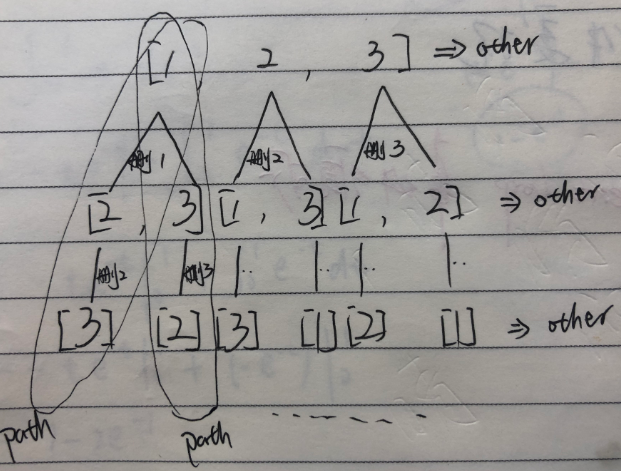 [1 2 , 3] ⇒ other
删1 删2 删3
[2 , 3] [1 , 3] [1 , 2] ⇒ other
删2 删3 .. .. .. ..
[3] [2] [3] [1] [2] [1] ⇒ other
path path ........